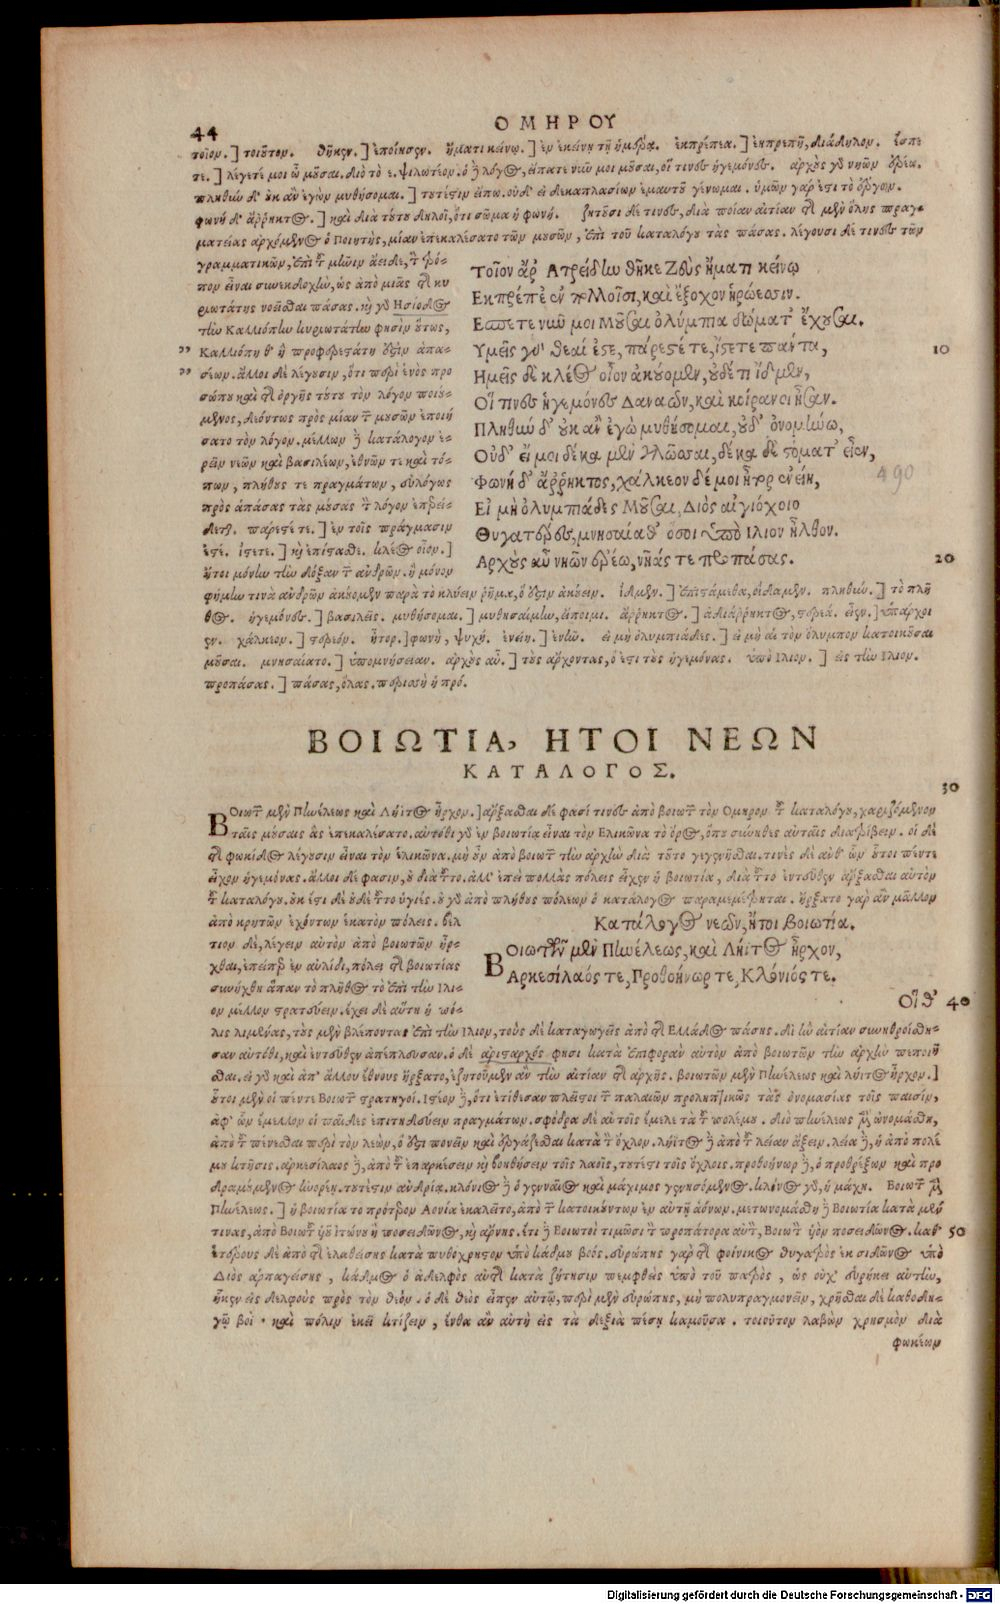 44
ΟΜΗΡΟΥ
τοῖον.] τοιοῦτον. θῆκεν.] ἐποίησεν. ἤματι κείνῳ.] ἐν ἐκείνῃ τῇ ἡμέρᾳ. ἐκπρέπεα.] ἐκπρεπῆ, διάδηλον. ἔσπε
τε.] λέγετε μοι ὦ μοῦσαι. διὸ τὸ ε. ψιλωτέον. ὁ δὲ λόγος, εἴπατε νῦν μοι μοῦσαι, οἵ τινες ἡγεμόνες. ἀρχοὺς γὰρ νηῶν ἐρέω.
πληθὺν δ' οὐκ ἂν ἐγὼν μυθήσομαι.] τουτέστιν εἴπω. οὐδ' εἰ δεκαπλασίων ἐμαυτοῦ γένωμαι. ὑμῶν γάρ ἐστι τὸ ἔργον.
φωνὴ δ' ἄῤῥηκτος.] καὶ διὰ τούτου δηλοῖ, ὅτι σῶμα ἡ φωνή. ζητοῦσι δέ τινες, διὰ ποίαν αἰτίαν τῆς μὲν ὅλης πραγ-
ματείας ἀρχόμενος ὁ Ποιητὴς, μίαν ἐπεκαλέσατο τῶν μουσῶν, ἐπὶ τοῦ καταλόγου τὰς πάσας. λέγουσι δέ τινες τῶν
γραμματικῶν, ἐπὶ τοῦ μῆνιν ἄειδε, τὸν τρό-
πον εἶναι συνεκδοχὴν, ὡς ἀπὸ μιᾶς τῆς κυ
ριωτάτης νοεῖσθαι πάσας. καὶ γὰρ Ησίοδος
τὴν Καλλιόπην κυριωτάτην φησὶν οὕτως,
" Καλλιόπη θ' ἣ προφερεστάτη ἐστὶν ἁπα-
" σέων. ἄλλοι δὲ λέγουσιν, ὅτι περὶ ἑνὸς προ
σώπου καὶ τῆς ὀργῆς τούτου τὸν λόγον ποιού-
μενος, δεόντως πρὸς μίαν τῶν μουσῶν ἐποιή
σατο τὸν λόγον. μέλλων δὲ κατάλογον ἐ-
ρεῖν νεῶν καὶ βασιλέων, ἐθνῶν τε καὶ τό-
πων, πλήθους τε πραγμάτων, εὐλόγως
πρὸς ἁπάσας τὰς μούσας τὸν λόγον ἐπερεί-
δεται. πάρεστέ τε.] ἐν τοῖς πράγμασιν
ἐστέ. ἴστετε.] καὶ ἐπίστασθε. κλέος οἶον.]
ἤτοι μόνην τὴν δόξαν τῶν ἀνδρῶν. ἢ μόνον
Τοῖον ἄρ' Ατρείδην θῆκε Ζεὺς ἤματι κείνῳ
Εκπρέπε' ἐν πολλοῖσι, καὶ ἔξοχον ἡρώεσσιν.
Εσπετε νῦν μοι Μοῦσαι ὀλύμπια δώματ' ἔχουσαι.
Υμεῖς γὰρ θεαί ἐστε, πάρεστέ τε, ἴστε τε πάντα, 10
Ημεῖς δὲ κλέος οἶον ἀκούομεν, οὐδέ τι ἴδμεν,
Οἵ τινες ἡγεμόνες Δαναῶν, καὶ κοίρανοι ἦσαν.
Πληθὺν δ' οὐκ ἂν ἐγὼ μυθήσομαι, οὐδ' ὀνομήνω,
Οὐδ' εἴ μοι δέκα μὲν γλῶσσαι, δέκα δὲ στόματ' εἶεν,
490
Φωνὴ δ' ἄῤῥηκτος, χάλκεον δέ μοι ἦτορ ἐνείη,
Εἰ μὴ ὀλυμπιάδες Μοῦσαι, Διὸς αἰγιόχοιο
Θυγατέρες, μνησαίαθ' ὅσοι ὑπὸ Ιλιον ἦλθον.
Αρχοὺς αὖ νηῶν ἐρέω, νῆάς τε προπάσας. 20
φήμην τινὰ ἀνδρῶν ἀκούομεν παρὰ τὸ κλύειν ῥῆμα, ὅ ἐστιν ἀκούειν. ἴδμεν.] ἐπιστάμεθα, οἴδαμεν. πληθύν.] τὸ πλῆ
θος. ἡγεμόνες.] βασιλεῖς. μυθήσομαι.] μυθησαίμην, εἴποιμι. ἄῤῥηκτος.] ἀδιάῤῥηκτος, στερεά. εἶεν.] ὑπάρχοι
εν. χάλκεον.] στερεόν. ἦτορ.] φωνὴ, ψυχή. ἐνείη.] ἐνῆν. εἰ μὴ ὀλυμπιάδες.] εἰ μὴ αἱ τὸν ὄλυμπον κατοικοῦσαι
μοῦσαι. μνησαίατο.] ὑπομνήσειαν. ἀρχοὺς αὖ.] τοὺς ἄρχοντας, ὅ ἐστι τοὺς ἡγεμόνας. ὑπὸ Ιλιον.] εἰς τὴν Ιλιον.
προπάσας.] πάσας, ὅλας. περισσὴ ἡ πρό.
ΒΟΙΩΤΙΑ, ΗΤΟΙ ΝΕΩΝ
ΚΑΤΑΛΟΓΟΣ.
30
Βοιωτῶν μὲν Πηνέλεως καὶ Λήϊτος ἦρχον.] ἄρξασθαι δέ φασί τινες ἀπὸ βοιωτῶν τὸν Ομηρον τοῦ καταλόγου, χαριζόμενον
ταῖς μούσαις ἃς ἐπεκαλέσατο. αὐτόθι γὰρ ἐν βοιωτίᾳ εἶναι τὸν Ελικῶνα τὸ ὄρος, ὅπου σύνηθες αὐταῖς διατρίβειν. οἱ δὲ
τῆς φωκίδος λέγουσιν εἶναι τὸν ἑλικῶνα. μὴ οὖν ἀπὸ βοιωτῶν τὴν ἀρχὴν διὰ τοῦτο γεγενῆσθαι. τινὲς δὲ ἀνθ' ὧν οὗτοι πέντε
εἶχον ἡγεμόνας. ἄλλοι δέ φασιν, οὐ διὰ τοῦτο. ἀλλ' ἐπεὶ πολλὰς πόλεις εἶχεν ἡ βοιωτία, διὰ τοῦτο ἐντεῦθεν ἄρξασθαι αὐτὸν
τοῦ καταλόγου. οὐκ ἔστι δὲ οὐδὲ τοῦτο ὑγιές. οὐ γὰρ ἀπὸ πλήθους πόλεων ὁ κατάλογος παραμεμέτρηται. ἤρξατο γὰρ ἂν μᾶλλον
ἀπὸ κρητῶν ἐχόντων ἑκατὸν πόλεις. βέλ
τιον δὲ, λέγειν αὐτὸν ἀπὸ βοιωτῶν ἦρ-
χθαι, ἐπείπερ ἐν αὐλίδι, πόλει τῆς βοιωτίας
συνήχθη ἅπαν τὸ πλῆθος τὸ ἐπὶ τὴν Ιλι-
ον μέλλον στρατεύειν. ἔχει δὲ αὕτη ἡ πό-
Κατάλογος νεῶν, ἤτοι βοιωτία.
Βοιωτῶν μὲν Πηνέλεως, καὶ Λήϊτος ἦρχον,
Αρκεσίλαός τε, Προθοήνωρ τε, Κλόνιός τε.
Οἵ θ' 40
λις λιμένας, τοὺς μὲν βλέποντας ἐπὶ τὴν Ιλιον, τοὺς δὲ καταγωγεῖς ἀπὸ τῆς Ελλάδος πάσης. δι' ἣν αἰτίαν συνηθροίσθη-
σαν αὐτόθι, καὶ ἐντεῦθεν ἀπέπλευσαν. ὁ δὲ ἀρίσταρχός φησι κατὰ ἐπιφορὰν αὐτὸν ἀπὸ βοιωτῶν τὴν ἀρχὴν πεποιῆ
σθαι. εἰ γὰρ καὶ ἀπ' ἄλλου ἔθνους ἤρξατο, ἐζητοῦμεν ἂν τὴν αἰτίαν τῆς ἀρχῆς. βοιωτῶν μὲν Πηνέλεως καὶ λήϊτος ἦρχον.]
οὗτοι μὲν οἱ πέντε Βοιωτῶν στρατηγοί. Ιστέον δὲ, ὅτι ἐτίθεσαν πλεῖστοι τῶν παλαιῶν προληπτικῶς τὰς ὀνομασίας τοῖς παισὶν,
ἀφ' ὧν ἔμελλον οἱ παῖδες ἐπιτηδεύειν πραγμάτων. σφόδρα δὲ αὐτοῖς ἔμελε τὰ τοῦ πολέμου. διὸ πηνέλεως μὲν ὠνομάσθη,
ἀπὸ τοῦ πένεσθαι περὶ τὸν λεών, ὅ ἐστι πονεῖν καὶ ἐργάζεσθαι κατὰ τὸν ὄχλον. λήϊτος δὲ ἀπὸ τοῦ λείαν ἄξειν. λεία δὲ, ἡ ἀπὸ πολέ
μου κτῆσις. ἀρκεσίλαος δὲ, ἀπὸ τοῦ ἐπαρκέσειν καὶ βοηθήσειν τοῖς λαοῖς, τουτέστι τοῖς ὄχλοις. προθοήνωρ δὲ, ὁ προθρέξων καὶ προ
δραμούμενος ἠνορέῃ. τουτέστιν ἀνδρίᾳ. κλόνιος δὲ ὁ γενναῖος καὶ μάχιμος γενησόμενος. κλόνος γὰρ, ἡ μάχη. Βοιωτῶν μὲν
Πηνέλεως.] ἡ βοιωτία τὸ πρότερον Αονία ἐκαλεῖτο, ἀπὸ τῶν κατοικούντων ἐν αὐτῇ ἀόνων. μετωνομάσθη δὲ Βοιωτία κατὰ μέν
τινας, ἀπὸ Βοιωτοῦ τοῦ ἰτώνου ἢ ποσειδῶνος, καὶ ἄρνης. ἔτι δὲ Βοιωτοὶ τιμῶσι τὸν προπάτορα αὐτῶν, Βοιωτὸν υἱὸν ποσειδῶνος. καθ' 50
ἑτέρους δὲ ἀπὸ τῆς ἐλαθείσης κατὰ πυθόχρηστον ὑπὸ κάδμου βοός. εὐρώπης γὰρ τῆς φοίνικος θυγατρὸς ἐκ σιδῶνος ὑπὸ
Διὸς ἁρπαγείσης, κάδμος ὁ ἀδελφὸς αὐτῆς κατὰ ζήτησιν πεμφθεὶς ὑπὸ τοῦ πατρὸς, ὡς οὐχ' εὑρήκει αὐτὴν,
ἧκεν εἰς δελφοὺς πρὸς τὸν θεόν. ὁ δὲ θεὸς εἶπεν αὐτῷ, περὶ μὲν εὐρώπης, μὴ πολυπραγμονεῖν, χρῆσθαι δὲ καθοδη-
γῷ βοῒ · καὶ πόλιν ἐκεῖ κτίζειν, ἔνθα ἂν αὐτὴ εἰς τὰ δεξιὰ πέσῃ καμοῦσα. τοιοῦτον λαβὼν χρησμὸν διὰ
φωκέων
Digitalisierung gefördert durch die Deutsche Forschungsgemeinschaft - DFG